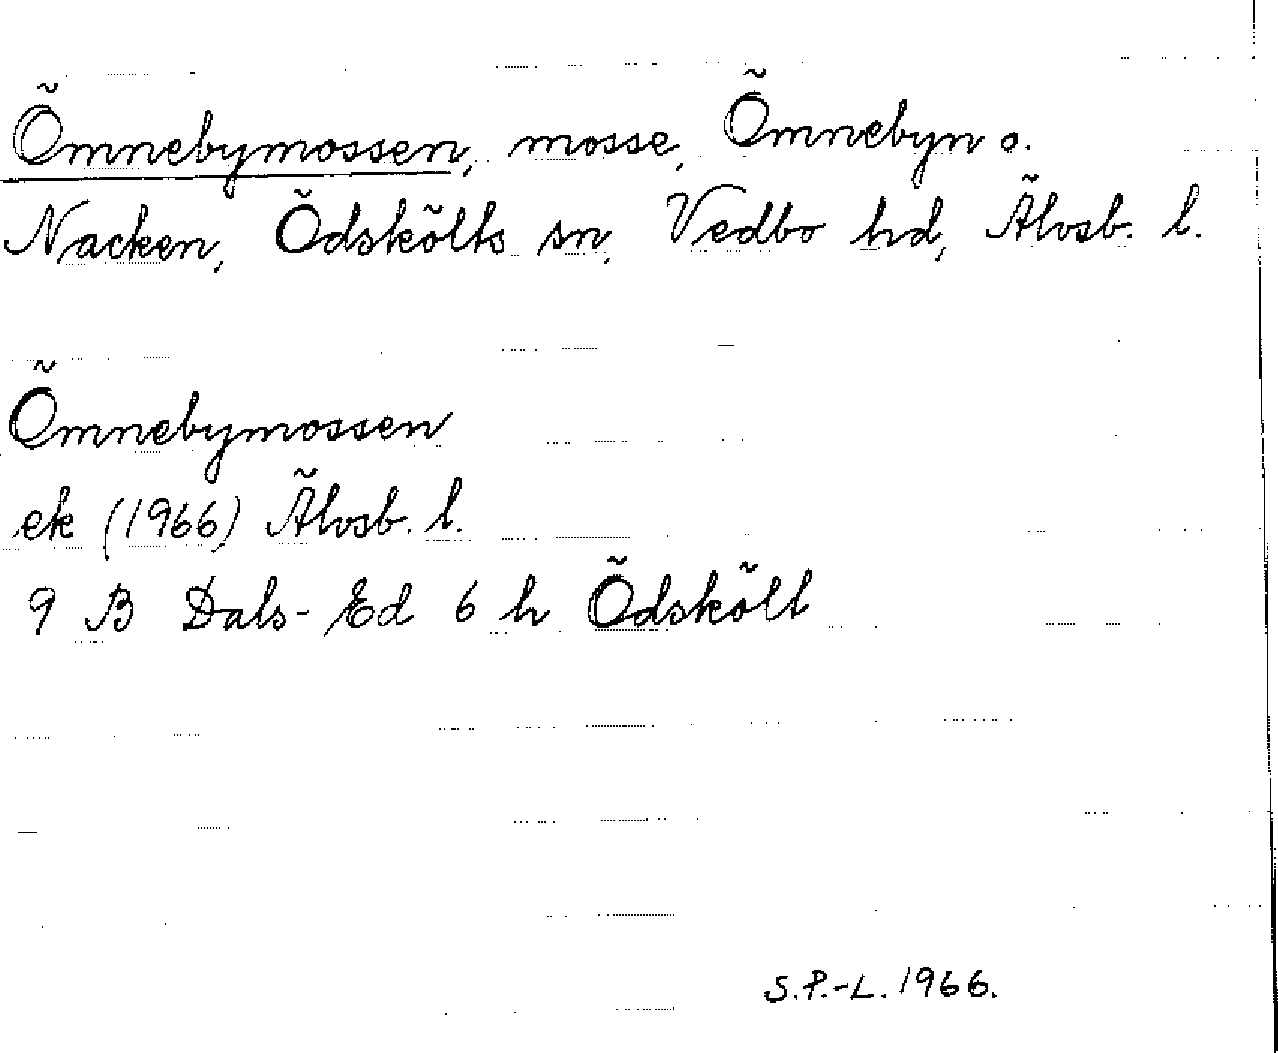 Ömnebymossen, mosse, Ömnebyn o.
Nacken, Ödskölts sn, Vedbo hd, Älvsb. l.
Ömnebymossen
ek (1966) Älvsb. l.
9 B Dals-Ed 6 h Ödskölt
S.P.-L. 1966.